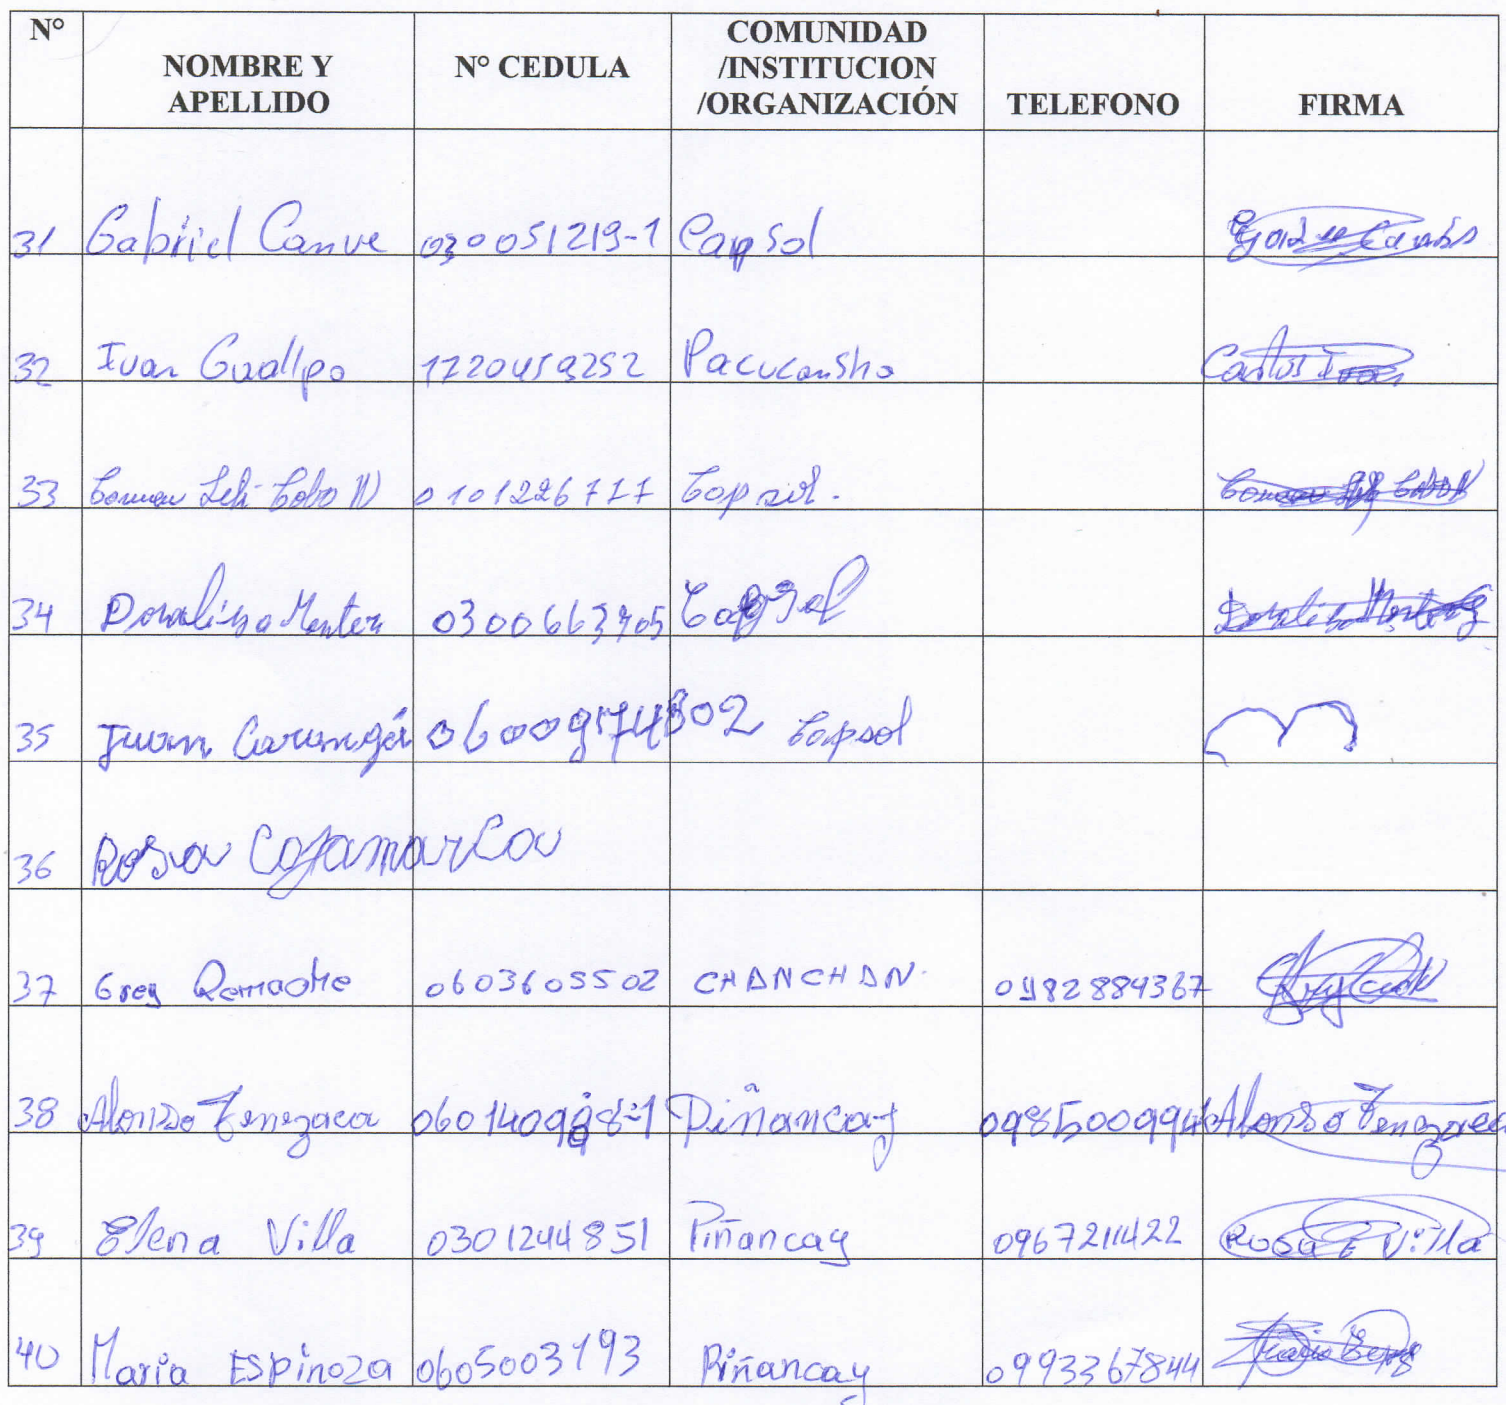 N° NOMBRE Y APELLIDO N° CEDULA COMUNIDAD /INSTITUCION /ORGANIZACIÓN TELEFONO FIRMA
31 Gabriel Canve 030051219-1 Capsol
32 Ivan Guallpa 1720459252 Pacucansha Carlos Ivan
33 Lobo 0101226777 Capsol.
34 Doraliza Montero 0300663705 Capsol Doraliza
35 Juan Carangui 0600974802 Capsol
36 Rosa Cajamarca
37 Grey Remache 0603605502 CHANCHAN. 0982884367
38 Alonzo Tenezaca Piñancay Alonso Tenezaca
39 Elena Villa 0301244851 Piñancay 0967211422 Rosa E Villa
40 Maria ESPinoza 0605003193 Piñancay 0993367844